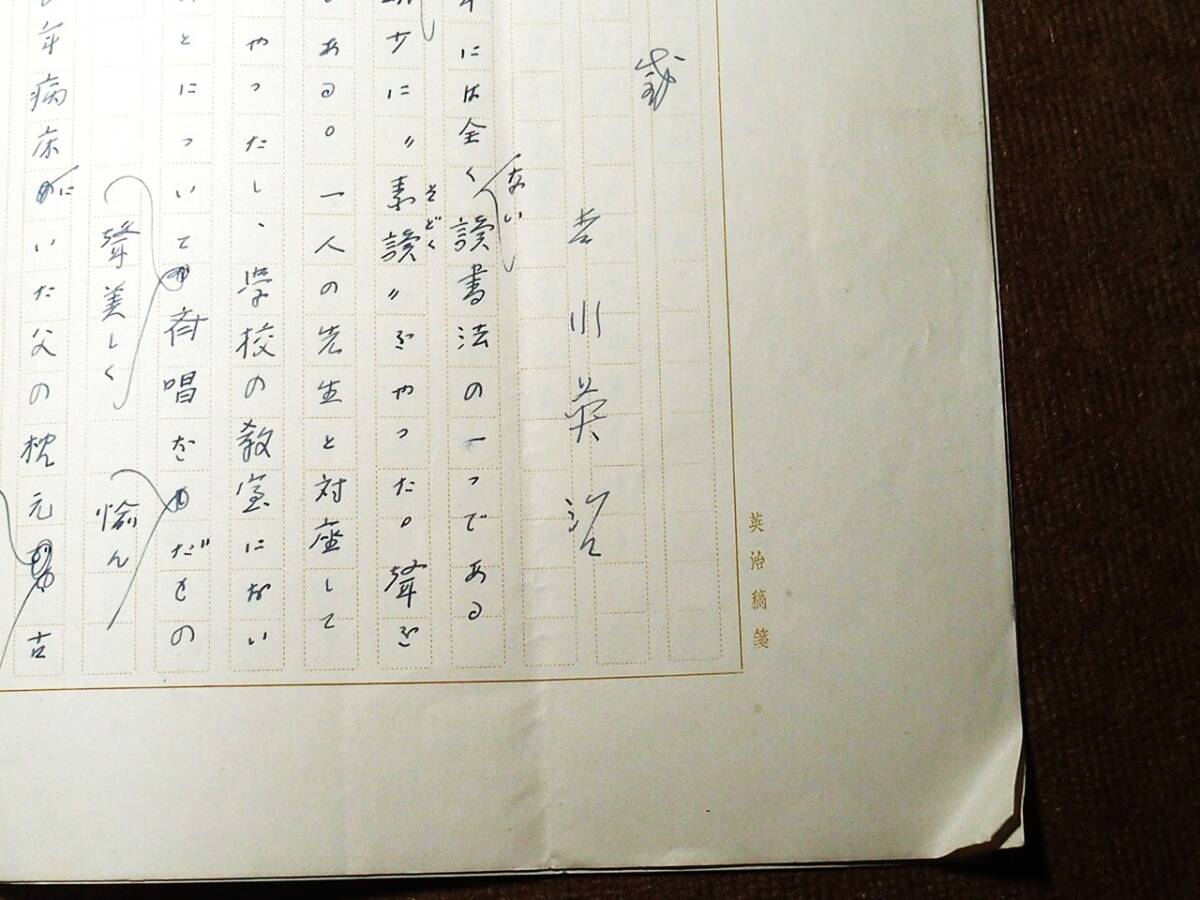 英治稿箋
吉川英治
年には全く讀書法の一つである
ない
少に〃素讀〃をやった。聲を
そどく
ある。一人の先生と対座して
やったし、學校の教室にない
とについて斉唱をだもの
聲美しく 愉ん
年病床にいた父の枕元 古